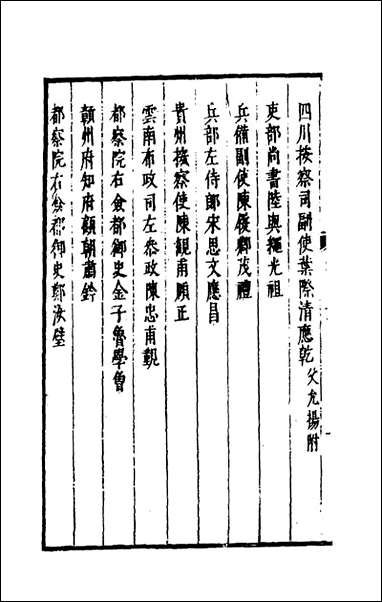 四川按察司副使葉際清應乾父允揚附
吏部尚書陸與繩光祖
兵備副使陳俊卿茂禮
兵部左侍郎宋思文應昌
貴州按察使陳觀甫順正
雲南布政司左叅政陳忠甫觀
都察院右僉都御史金子魯學曾
贛州府知府顧朝肅鈐
都察院右僉都御史鄭汝璧